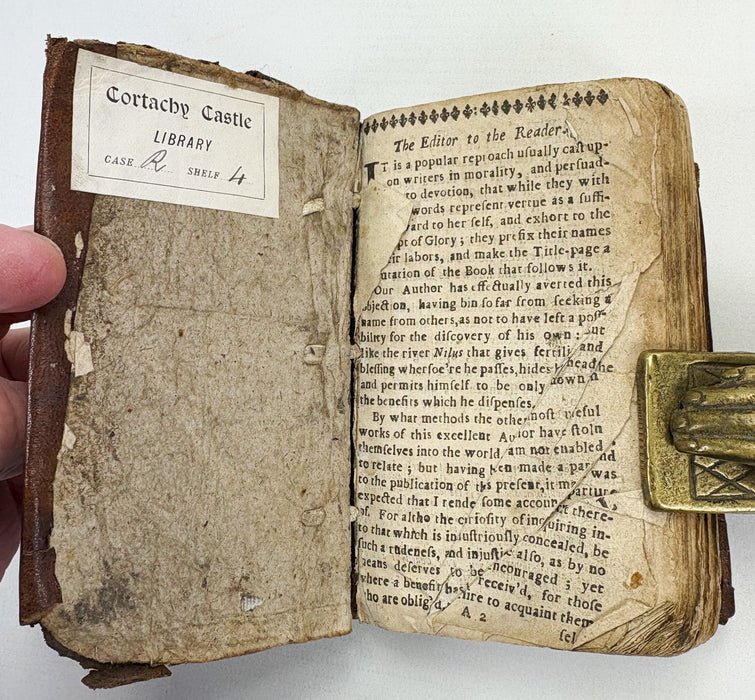 Cortachy Castle
LIBRARY
CASE R SHELF 4
The Editor to the Reader.
IT is a popular reproach uſually caſt up-
on writers in morality, and perſuad-
to devotion, that while they with
words repreſent vertue as a ſuffi-
ard to her ſelf, and exhort to the
pt of Glory; they prefix their names
ir labors, and make the Title-page a
utation of the Book that follows it.
Our Author has effectually averted this
objection, having bin ſo far from ſeeking a
name from others, as not to have left a poſſi-
bility for the diſcovery of his own: but
like the river Nilus that gives fertili and
bleſſing wherſoe're he paſſes, hides head
and permits himſelf to be only
the benefits which he diſpenſes.
By what methods the other moſt uſeful
works of this excellent Au or have ſtoln
themſelves into the world, am not enabled
to relate; but having made a pa
to the publication of this preſent, it may was
expected that I rende ſome account there-
of. For altho the curioſity of inquiring in-
to that which is induſtriouſly concealed, be
ſuch a rudeneſs, and injuſti alſo, as by no
means deſerves to be encouraged; yet
where a benefit is receiv'd, for thoſe
who are oblig'd, to acquaint them
A 2
ſel